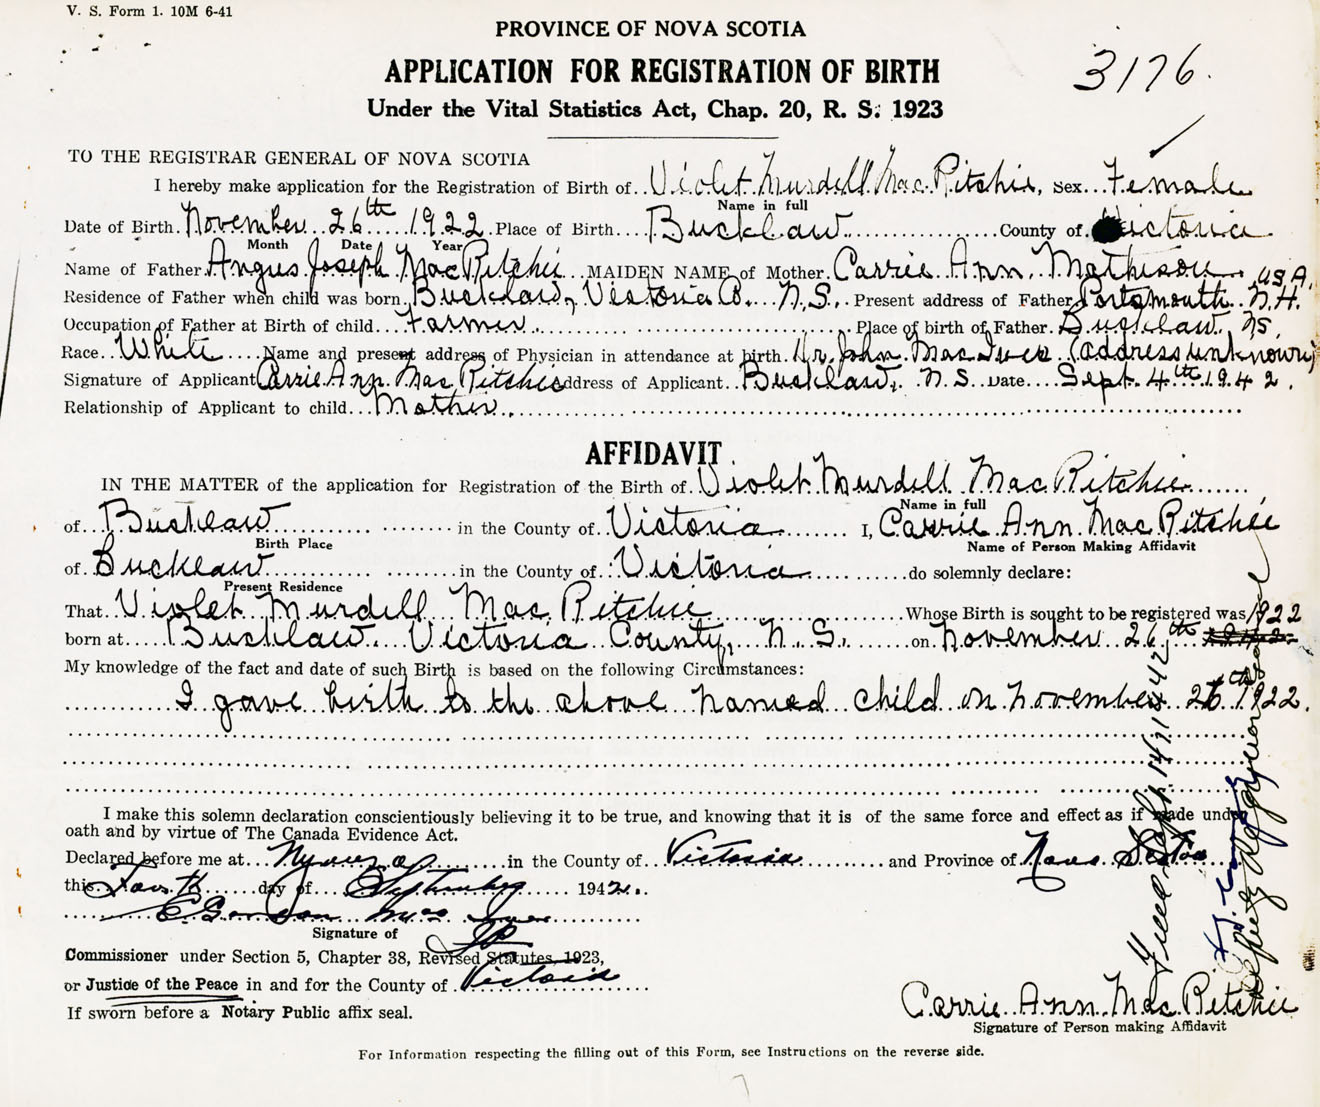 V. S. Form 1. 10M 6-41
PROVINCE OF NOVA SCOTIA
APPLICATION FOR REGISTRATION OF BIRTH
3176.
Under the Vital Statistics Act, Chap. 20, R. S. 1923
TO THE REGISTRAR GENERAL OF NOVA SCOTIA
I hereby make application for the Registration of Birth of Violet Murdell Mac Ritchie, Sex Female
Name in full
Date of Birth November 26th 1922 Place of Birth Bucklaw County of Victoria
Month Date Year
Name of Father Angus Joseph MacRitchie MAIDEN NAME of Mother Carrie Ann Mathison
Residence of Father when child was born Bucklaw, Victoria Co. N.S. Present address of Father Portsmouth N.H. USA.
Occupation of Father at Birth of child Farmer Place of birth of Father Bucklaw, NS.
Race White Name and present address of Physician in attendance at birth Dr. John MacIver (address unknown)
Signature of Applicant Carrie Ann Mac Ritchie Address of Applicant Bucklaw, N.S. Date Sept. 4th 1942.
Relationship of Applicant to child Mother
AFFIDAVIT
IN THE MATTER of the application for Registration of the Birth of Violet Murdell Mac Ritchie
Name in full
of Bucklaw in the County of Victoria I, Carrie Ann Mac Ritchie
Birth Place Name of Person Making Affidavit
of Bucklaw in the County of Victoria do solemnly declare:
Present Residence
That Violet Murdell Mac Ritchie Whose Birth is sought to be registered was
born at Bucklaw, Victoria County, N.S. on November 26th 1922
My knowledge of the fact and date of such Birth is based on the following Circumstances:
I gave birth to the above named child on November 26th 1922.
I make this solemn declaration conscientiously believing it to be true, and knowing that it is of the same force and effect as if made under
oath and by virtue of The Canada Evidence Act.
Declared before me at in the County of Victoria and Province of Nova Scotia
this Fourth day of September 1942.
E Gordon Mac Iver
Signature of JP
Commissioner under Section 5, Chapter 38, Revised Statutes, 1923,
or Justice of the Peace in and for the County of Victoria
If sworn before a Notary Public affix seal.
Carrie Ann Mac Ritchie
Signature of Person making Affidavit
For Information respecting the filling out of this Form, see Instructions on the reverse side.
Filed Sept. 14 1942
Deputy